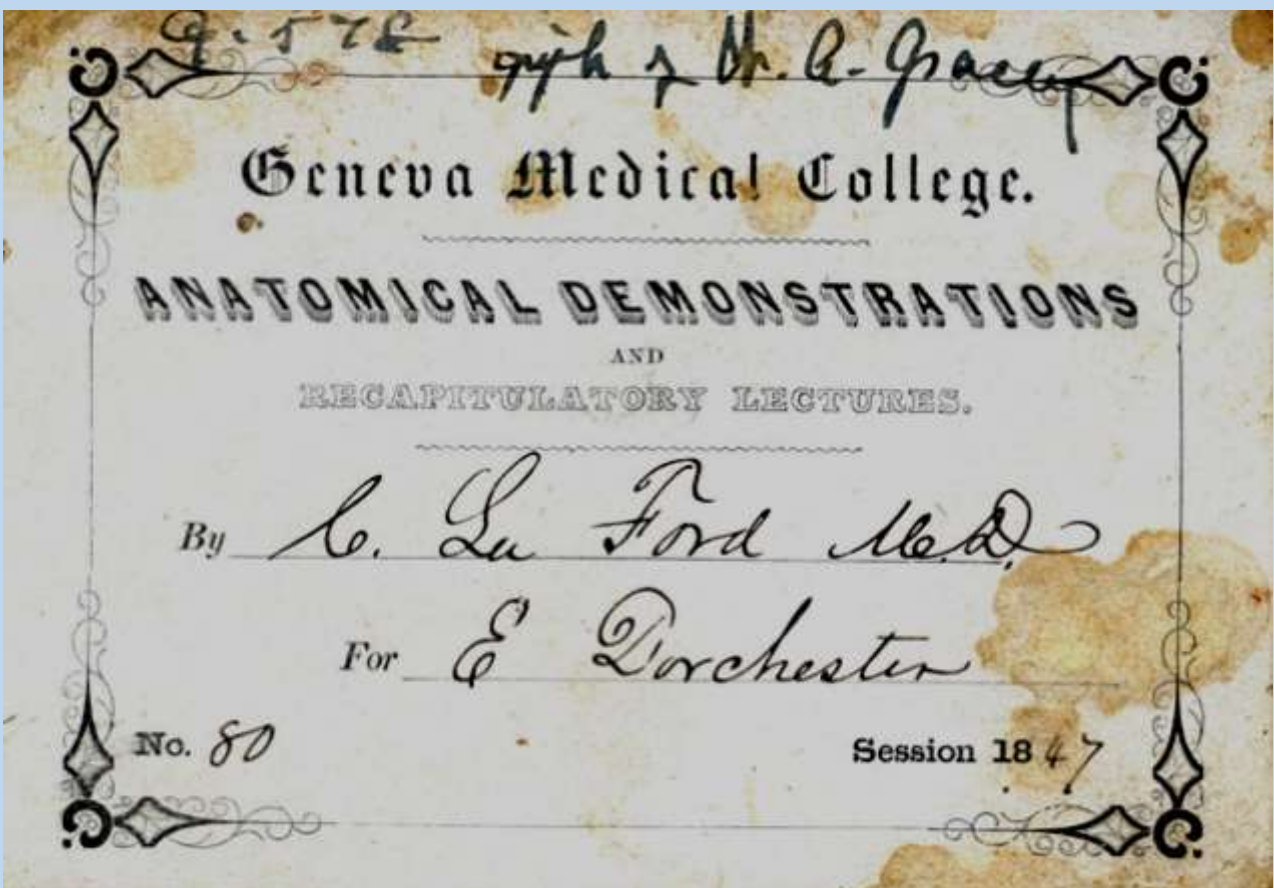 Geneva Medical College.
ANATOMICAL DEMONSTRATIONS
AND
RECAPITULATORY LECTURES.
By C. La Ford M.D.
For E Dorchester
No. 80
Session 1847